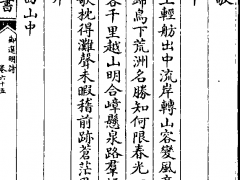 敬
上輕舫出中流岸轉山容變風
歸鳥下荒洲名勝知何限春光
千里越山明合嶂懸泉路群
歌枕得灘聲未暇稽前跡蒼茫
山中
書
御選明詩 卷六十五